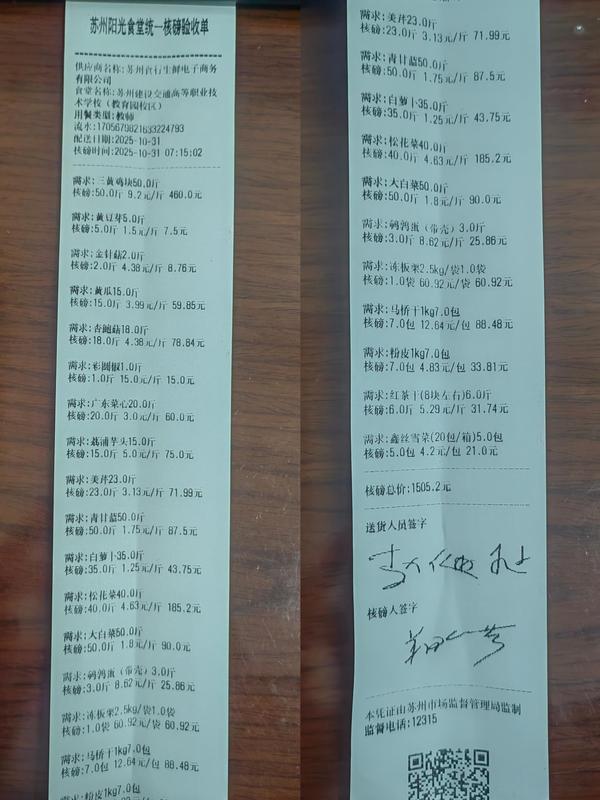 苏州阳光食堂统一核磅验收单
供应商名称:苏州食行生鲜电子商务
有限公司
食堂名称:苏州建设交通高等职业技
术学校（教育园校区）
用餐类型:教师
流水:1705679821633224793
配送日期:2025-10-31
核磅时间:2025-10-31 07:15:02
需求:三黄鸡块50.0斤
核磅:50.0斤 9.2元/斤 460.0元
需求:黄豆芽5.0斤
核磅:5.0斤 1.5元/斤 7.5元
需求:金针菇2.0斤
核磅:2.0斤 4.38元/斤 8.76元
需求:黄瓜15.0斤
核磅:15.0斤 3.99元/斤 59.85元
需求:杏鲍菇18.0斤
核磅:18.0斤 4.38元/斤 78.84元
需求:彩圆椒1.0斤
核磅:1.0斤 15.0元/斤 15.0元
需求:广东菜心20.0斤
核磅:20.0斤 3.0元/斤 60.0元
需求:荔浦芋头15.0斤
核磅:15.0斤 5.0元/斤 75.0元
需求:美芹23.0斤
核磅:23.0斤 3.13元/斤 71.99元
需求:青甘蓝50.0斤
核磅:50.0斤 1.75元/斤 87.5元
需求:白萝卜35.0斤
核磅:35.0斤 1.25元/斤 43.75元
需求:松花菜40.0斤
核磅:40.0斤 4.63元/斤 185.2元
需求:大白菜50.0斤
核磅:50.0斤 1.8元/斤 90.0元
需求:鹌鹑蛋（带壳）3.0斤
核磅:3.0斤 8.62元/斤 25.86元
需求:冻板栗2.5kg/袋1.0袋
核磅:1.0袋 60.92元/袋 60.92元
需求:马桥干1kg7.0包
核磅:7.0包 12.64元/包 88.48元
需求:粉皮1kg7.0包
需求:美芹23.0斤
核磅:23.0斤 3.13元/斤 71.99元
需求:青甘蓝50.0斤
核磅:50.0斤 1.75元/斤 87.5元
需求:白萝卜35.0斤
核磅:35.0斤 1.25元/斤 43.75元
需求:松花菜40.0斤
核磅:40.0斤 4.63元/斤 185.2元
需求:大白菜50.0斤
核磅:50.0斤 1.8元/斤 90.0元
需求:鹌鹑蛋（带壳）3.0斤
核磅:3.0斤 8.62元/斤 25.86元
需求:冻板栗2.5kg/袋1.0袋
核磅:1.0袋 60.92元/袋 60.92元
需求:马桥干1kg7.0包
核磅:7.0包 12.64元/包 88.48元
需求:粉皮1kg7.0包
核磅:7.0包 4.83元/包 33.81元
需求:红茶干(8块左右)6.0斤
核磅:6.0斤 5.29元/斤 31.74元
需求:鑫丝雪菜(20包/箱)5.0包
核磅:5.0包 4.2元/包 21.0元
核磅总价:1505.2元
送货人员签字
核磅人签字
本凭证由苏州市场监督管理局监制
监督电话:12315